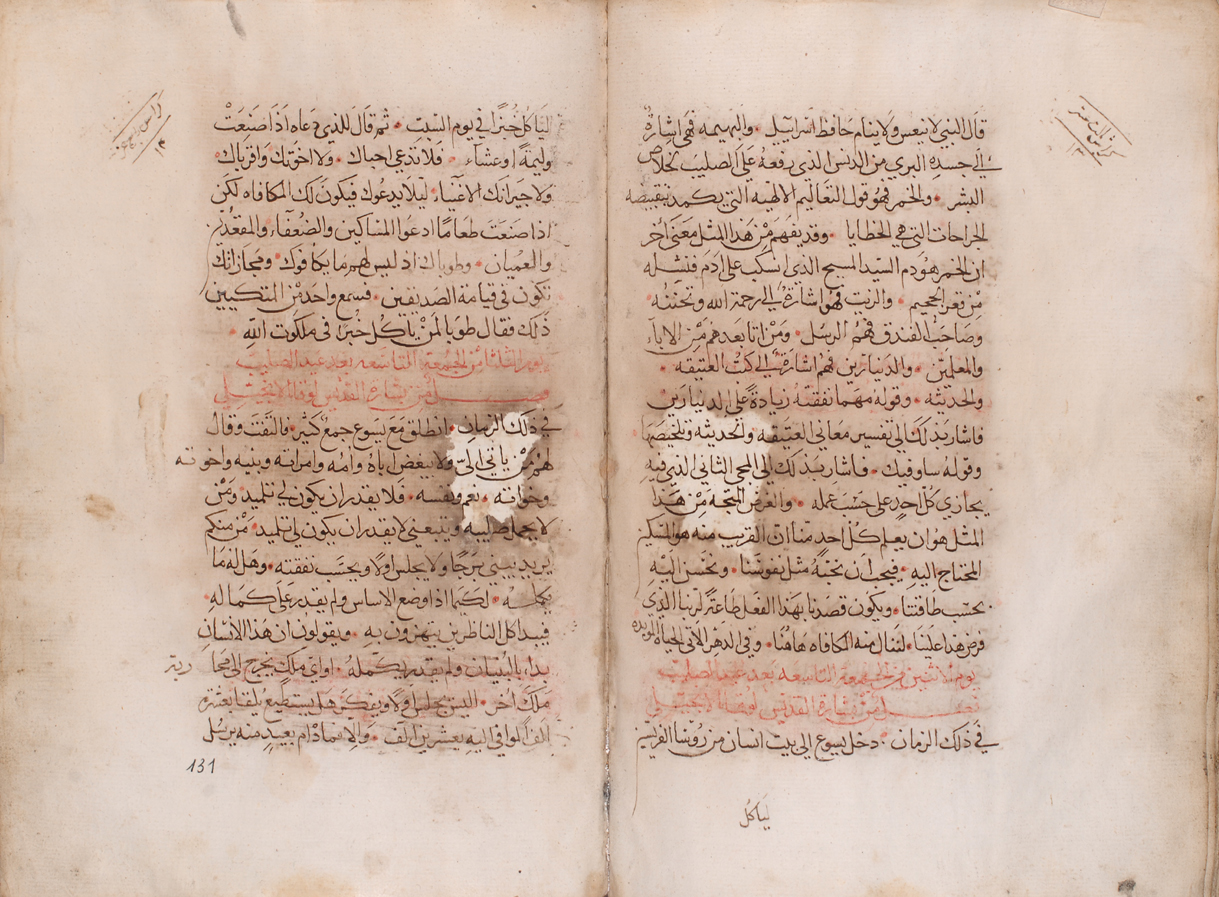 قال النبي لا ينعس ولا ينام حافظ اسراييل • والبهيمه فهي اشارة
الي جسده البري من الدنس الذي رفعه علي الصليب لخلاص
البشر • والخمر فهو قول التعاليم الالهيه التي يكمد بقبيضه
الجراحات التي هي الخطايا • وقد يفهم من هذا المثل معني اخر
ان الخمر هو دم السيد المسيح الذي انسكب علي ادم فنشله
من قعر الجحيم • والزيت فهو اشارة الي رحمة الله وتحننه
وصاحب الفندق فهم الرسل • ومن اتا بعدهم من الاباء
والمعلمين • والدينارين فهم اشارة الي كتب العتيقه •
والحديثه • وقوله مهما نفقته زيادة علي الدينارين
فاشار بذلك الي تفسير معاني العتيقه والحديثه وتلخيصها
وقوله ساوفيك • فاشار بذلك الي المجي الثاني الذي فيه
يجازي كل احد علي حسب عمله • والغرض المتجه من هذا
المثل هو ان يعلم كل احد منا ان القريب منه هو المسكين
المحتاج اليه • فيجب ان نحبه مثل نفوسنا • ونحسن اليه
بحسب طاقتنا • ويكون قصدنا بهذا الفعل طاعة لربنا الذي
فرض هذا علينا • لننال منه المكافاه هاهنا • وفي الدهر الاتي الحياه الموبده
يوم الاثنين من الجمعه التاسعه بعد عيد الصليب
فصل من بشارة القديس لوقا الانجيلي
في ذلك الزمان • دخل يسوع الي بيت انسان من روسا الفريسيين
لياكل
لياكل خبزا في يوم السبت • ثم قال للذي دعاه اذا صنعت
وليمة او عشاء • فلا تدعي احباك • ولا اخوتك واقرباك
ولا جيرانك الاغنياء • ليلا يدعوك فيكون لك المكافاه لكن
اذا صنعت طعاما ادعوا المساكين والضعفاء والمقعدين
والعميان • وطوباك اذ ليس لهم ما يكافوك • ومجازاتك
تكون في قيامة الصديقين • فسمع واحد من المتكيين
ذلك فقال طوبا لمن ياكل خبزا في ملكوت الله •
يوم الثلثا من الجمعه التاسعه بعد عيد الصليب
فصل من بشارة القديس لوقا الانجيلي
في ذلك الزمان • انطلق مع يسوع جمع كثير • فالتفت وقال
لهم من ياتي الي ولا يبغض اباه وامه وامراته وبنيه واخوته
وخواته • نعم ونفسه • فلا يقدر ان يكون لي تلميد • ومن
لا يحمل صليبه ويتبعني لا يقدر ان يكون لي تلميد • من منكم
يريد يبني برجا ولا يجلس اولا ويحسب نفقته • وهل له ما
يكمله • لكيما اذا وضع الاساس ولم يقدر علي كماله •
فيبدا كل الناظرين يتهزون به • ويقولون ان هذا الانسان
بدا بالبنيان ولم يقدر يكمله • او اي ملك يخرج الي محاربة
ملك اخر • اليس يجلس اولا ويفكر هل يستطيع يلقا بعشرة
الف الموافي اليه بعشرين الف • والا فما دام بعيد منه يرسل
131